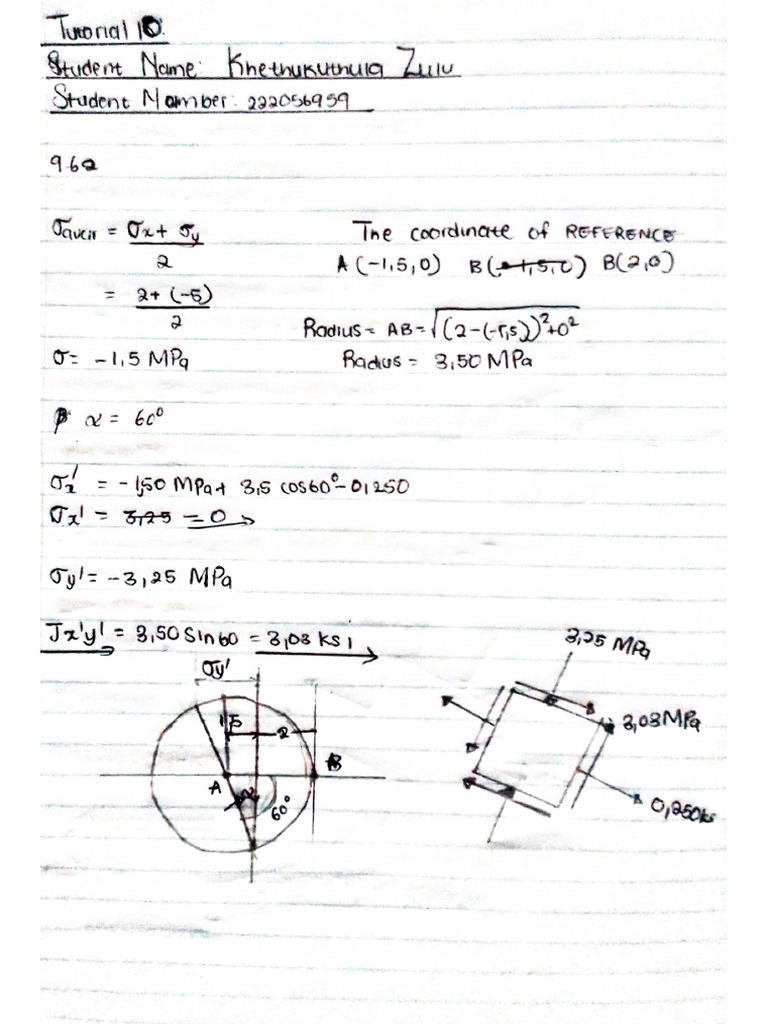 Tutorial 10.
Student Name: Khethukuthula Zulu
Student Number: 222056959
9-62
σaver = σx + σy
2
= 2 + (-5)
2
σ = -1,5 MPa
The coordinate of REFERENCE
A (-1,5, 0) B(-1,5,0) B(2,0)
Radius = AB = √(2-(-1,5))²+0²
Radius = 3,50 MPa
α = 60°
σx' = -1,50 MPa + 3,5 cos60° - 0,250
σx' = 3,25 = 0
σy' = -3,25 MPa
Jx'y' = 3,50 Sin 60 = 3,03 ksi
σy'
1,5
2
A
B
α
60°
3,25 MPa
3,03 MPa
0,250ks